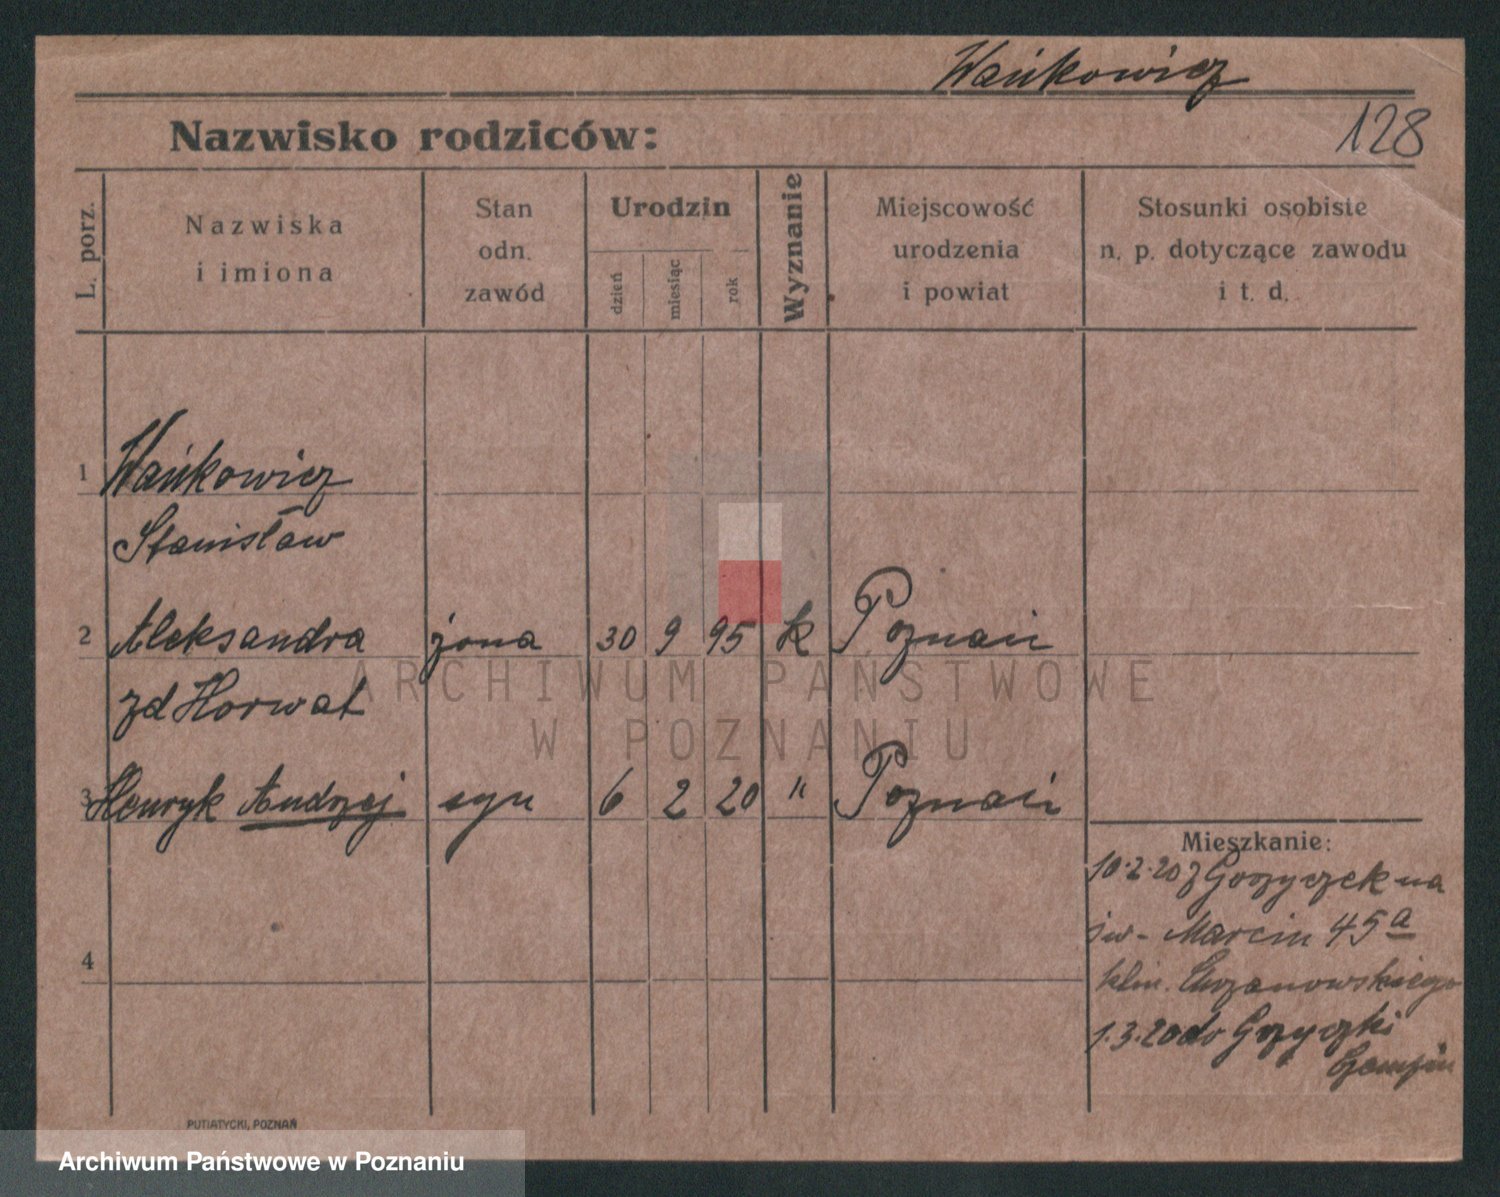 Wańkowicz
Nazwisko rodziców:
128
L. porz.
Nazwiska
i imiona
Stan
odn.
zawód
Urodzin
dzień
miesiąc
rok
Wyznanie
Miejscowość
urodzenia
i powiat
Stosunki osobiste
n. p. dotyczące zawodu
i t. d.
1 Wańkowicz
Stanisław
2 Aleksandra żona 30 9 95 k Poznań
zd Horwat
3 Henryk Andrzej syn 6 2 20 " Poznań
4
Mieszkanie:
10.2.20 z na
św. Marcin 45a
klin.
1.3.20 do
PUTIATYCKI, POZNAŃ
ARCHIWUM PAŃSTWOWE
W POZNANIU
Archiwum Państwowe w Poznaniu